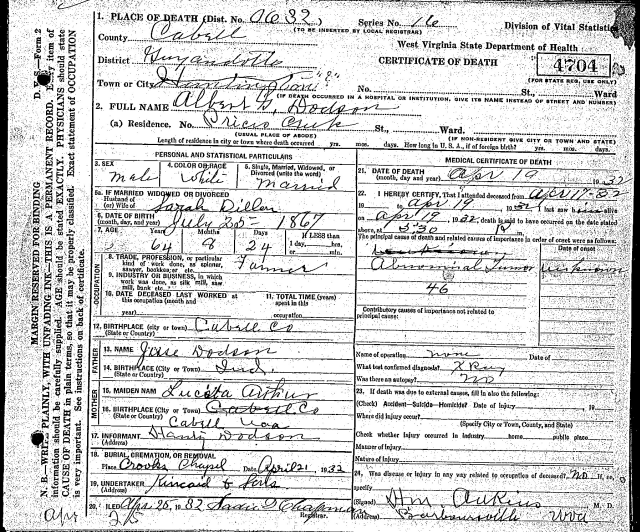 1. PLACE OF DEATH (Dist. No. 0632 Series No. 16 Division of Vital Statistics
(TO BE INSERTED BY LOCAL REGISTRAR)
County Cabell
West Virginia State Department of Health
District Guyandotte
CERTIFICATE OF DEATH 4704
(FOR STATE REG. USE ONLY)
Town or City Huntington No. St., Ward
(IF DEATH OCCURRED IN A HOSPITAL OR INSTITUTION, GIVE ITS NAME INSTEAD OF STREET AND NUMBER)
2. FULL NAME Albert Dodson
(a) Residence. No. Creek St., Ward.
(USUAL PLACE OF ABODE) (IF NON-RESIDENT GIVE CITY OR TOWN AND STATE)
Length of residence in city or town where death occurred yrs. mos. days. How long in U. S., if of foreign birth? yrs. mos. days.
PERSONAL AND STATISTICAL PARTICULARS
3. SEX Male
4. COLOR OR RACE White
5. Single, Married, Widowed, or Divorced (write the word) Married
5a. IF MARRIED WIDOWED OR DIVORCED
Husband of
(or) Wife of Sarah Dillon
6. DATE OF BIRTH
(month, day, and year) July 25 - 1867
7. AGE 64 Months 8 Days 24 If LESS than
1 day, hrs.
or min.
OCCUPATION
8. TRADE, PROFESSION, or particular
kind of work done, as spinner,
sawyer, bookkeeper, etc. Farmer
9. INDUSTRY OR BUSINESS, in which
work was done, as silk mill, saw
mill, bank etc.
10. DATE DECEASED LAST WORKED at
this occupation (month and year)
11. TOTAL TIME (years)
spent in this
occupation
12. BIRTHPLACE (city or town) Cabell Co
(State or Country)
FATHER
13. NAME Jose Dodson
14. BIRTHPLACE (City or Town) Ind.
(State or Country)
MOTHER
15. MAIDEN NAME Lucota Arthur
16. BIRTHPLACE (City or Town) Cabell Co
(State or Country)
17. INFORMANT Dodson
(Address)
18. BURIAL, CREMATION, OR REMOVAL
Place Crooks Chapel Date April 21 1932
19. UNDERTAKER Kincaid &
(Address)
20. FILED Apr 25, 1932
Registrar.
MEDICAL CERTIFICATE OF DEATH
21. DATE OF DEATH
(month, day, and year) Apr 19 1932
22. I HEREBY CERTIFY, That I attended deceased from Apr 17-32
to Apr 19 1932 last saw alive
on Apr 19 1932, death is said to have occurred on the date stated
above, at 5:30
The principal causes of death and related causes of importance in order of onset were as follows:
Date of onset
Abnominal Tumor unknown
46
Contributory causes of importance not related to
principal cause:
Name of operation none Date of
What test confirmed diagnosis? X Ray
Was there an autopsy? No
23. IF death was due to external causes, fill in also the following:
(Check) Accident—Suicide—Homicide? Date of Injury 19
Where did injury occur?
(Specify City or Town, County, and State)
Check whether injury occurred in industry home public place
Manner of Injury
Nature of Injury
24. Was disease or injury in any way related to occupation of deceased? No If so,
specify
(Signed) HM Adkins
(Address) Barboursville WVa
V. S.—Form 2
MARGIN RESERVED FOR BINDING
N. B.—WRITE PLAINLY, WITH UNFADING INK—THIS IS A PERMANENT RECORD. Every item of
information should be carefully supplied. AGE should be stated EXACTLY. PHYSICIANS should state
CAUSE OF DEATH in plain terms, so that it may be properly classified. Exact statement of OCCUPATION
is very important. See instructions on back of certificate.